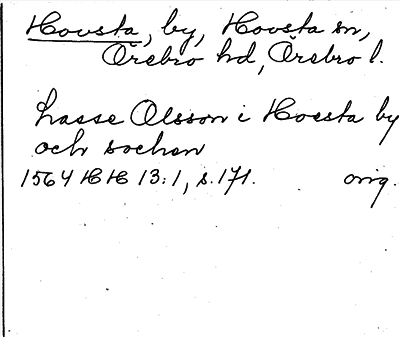 Hovsta, by, Hovsta sn,
Örebro hd, Örebro l.
Lasse Olsson i Hoesta by
och sochen
1564 HH 13:1, s. 171. orig.